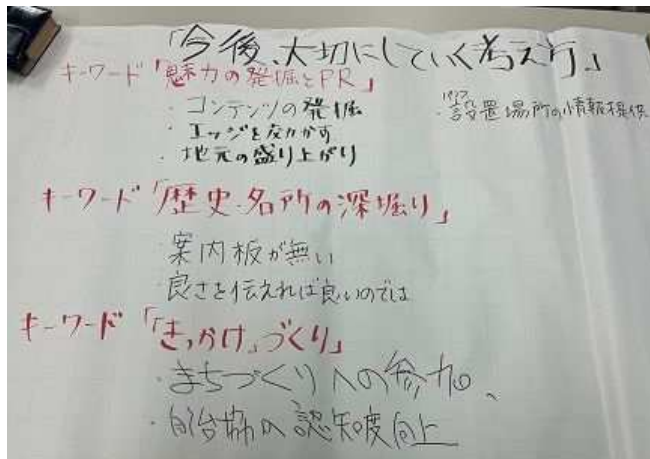 「今後、大切にしていく考え方」
キーワード「魅力の発掘とPR」
・コンテンツの発掘
・エッジを効かす
・地元の盛り上がり
・設置場所の情報提供
キーワード「歴史・名所の深堀り」
案内板が無い
良さを伝えれば良いのでは
キーワード「「きっかけ」づくり」
・まちづくりへの参加、
・自治協の認知度向上